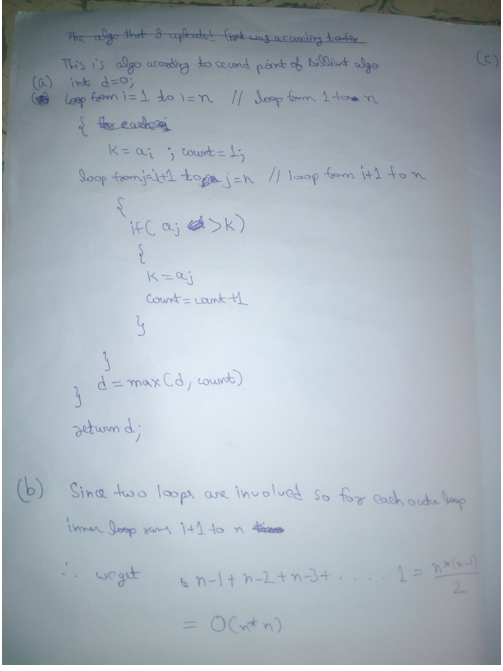 The algo that I uploaded first was according to
This is algo according to second point of Billiant algo
(c)
(a) int d=0;
loop from i=1 to i=n // loop from 1 to n
{ for each
k = ai ; count = 1;
loop from j=i+1 to j=n // loop from i+1 to n
{
if( aj >k)
{
k = aj
count = count +1
}
}
d = max(d, count)
}
return d;
(b) Since two loops are involved so for each outer loop
inner loop runs i+1 to n
∴ we get n-1 + n-2 + n-3 + ..... 1 = n*(n-1)/2
= O(n*n)